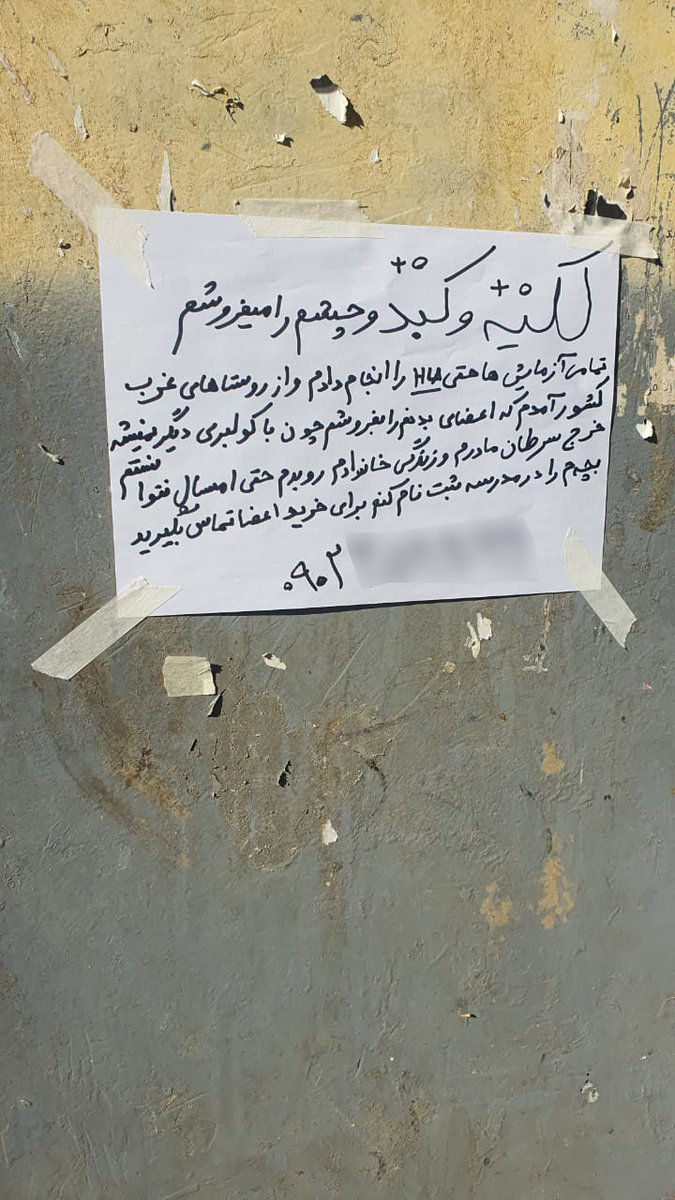 کلیه O+ و کبد O+ و چشم را میفروشم
تمامی آزمایش ها حتی HLA را انجام دادم و از روستاهای غرب
کشور آمدم که اعضای بدنم را بفروشم چون با کولبری دیگر نمیشه
خرج سرطان مادرم و زندگی خانوادم رو بدم حتی امسال نتوانستم
بچه م را در مدرسه ثبت نام کنم برای خرید اعضا تماس بگیرید
۰۹۰۳